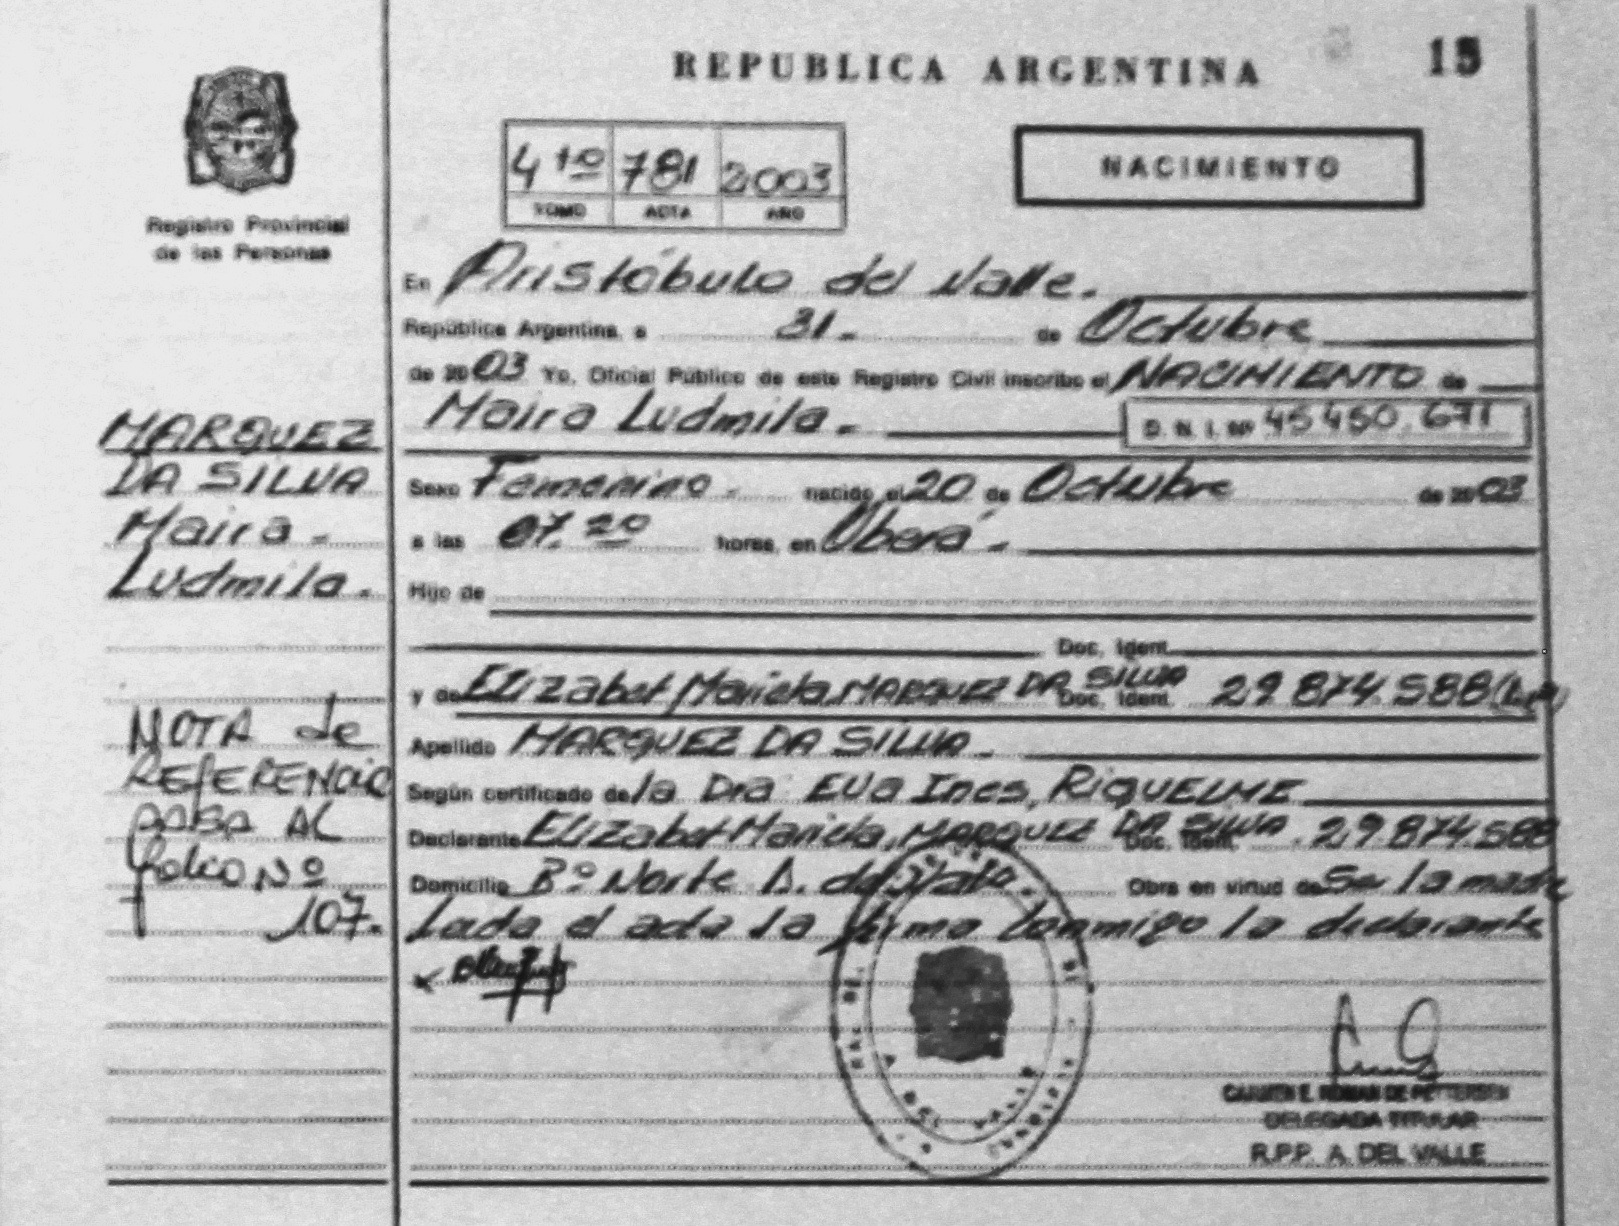 REPUBLICA ARGENTINA
15
4to 781 2003
TOMO ACTA AÑO
NACIMIENTO
Registro Provincial
de las Personas
En Aristóbulo del Valle.
República Argentina, a 31.- de Octubre
de 2003 Yo, Oficial Público de este Registro Civil inscribo el NACIMIENTO de
Maira Ludmila.- D. N. I. Nº 45 450.671
Sexo Femenino.- nacido el 20 de Octubre de 2003
a las 07.20 horas, en Oberá.-
Hijo de
Doc. Ident.
y de Elizabet Mariela, MARQUEZ DA SILVA Doc. Ident. 29.874.588
Apellido MARQUEZ DA SILVA.-
Según certificado de la Dra Eva Ines, RIQUELME
Declarante Elizabet Mariela, MARQUEZ DA SILVA Doc. Ident. 29.874.588
Domicilio Bº Norte A. del Valle.- Obra en virtud de Ser la madre
Leida el acta la firma conmigo la declarante
MARQUEZ
DA SILVA
Maira-
Ludmila.-
NOTA de
REFERENCIA
PASA AL
folio Nº
107.-
A. DEL VALLE
CARMEN E. ROMAN DE PETTERSEN
DELEGADA TITULAR
R.P.P. A. DEL VALLE